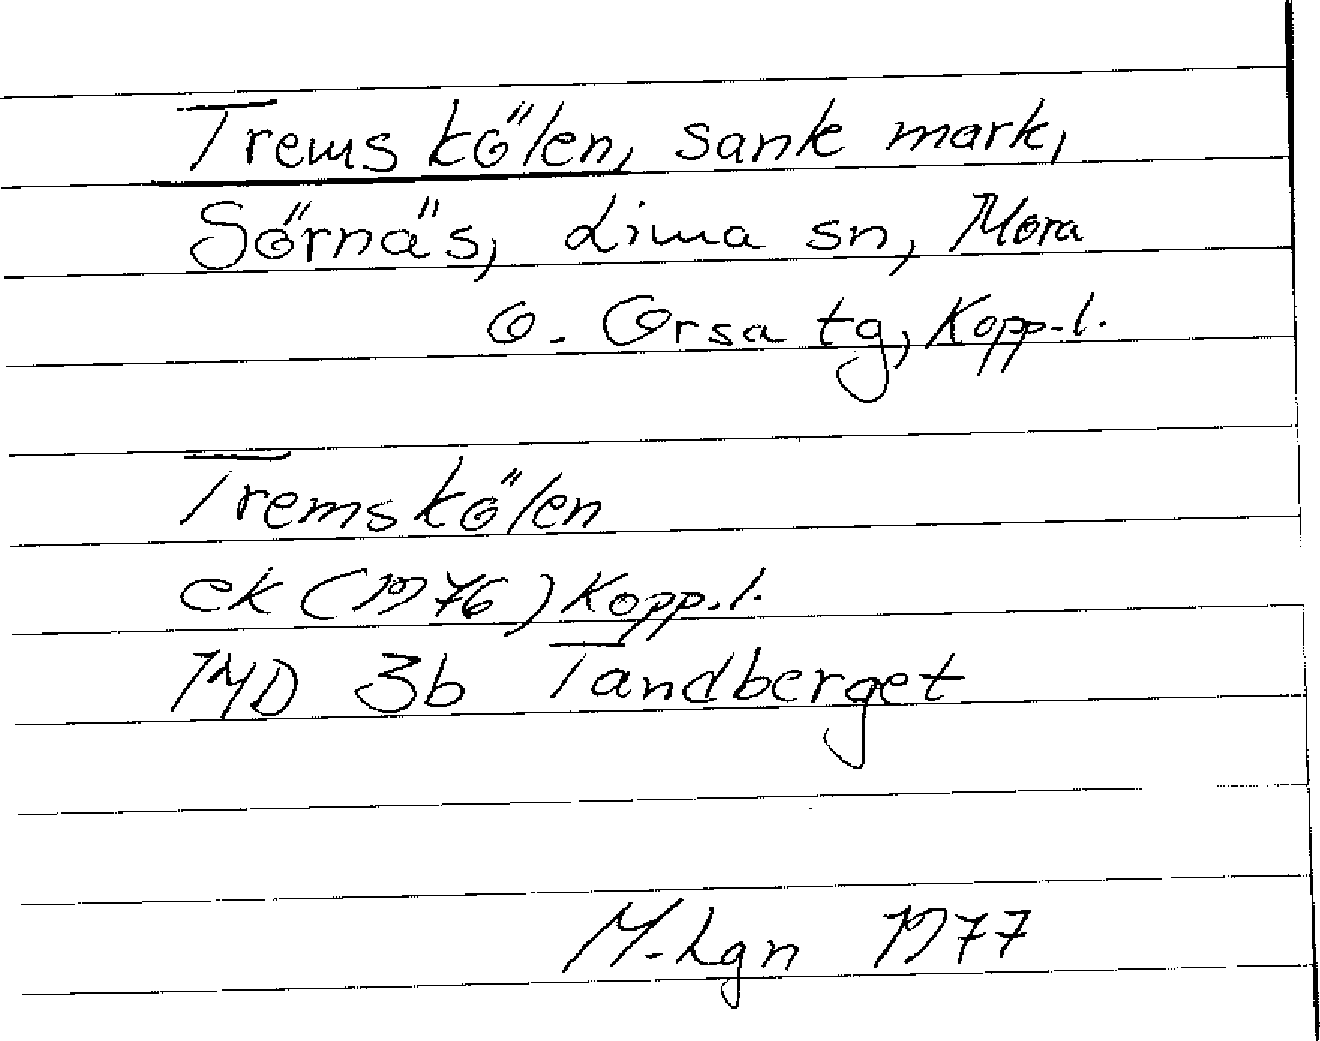 Tremskölen, sank mark,
Sörnäs, Lima sn, Mora
o. Orsa tg, Kopp.l.
Tremskölen
ek (1976) Kopp.l.
14D 3b Tandberget
M-Lgn 1977